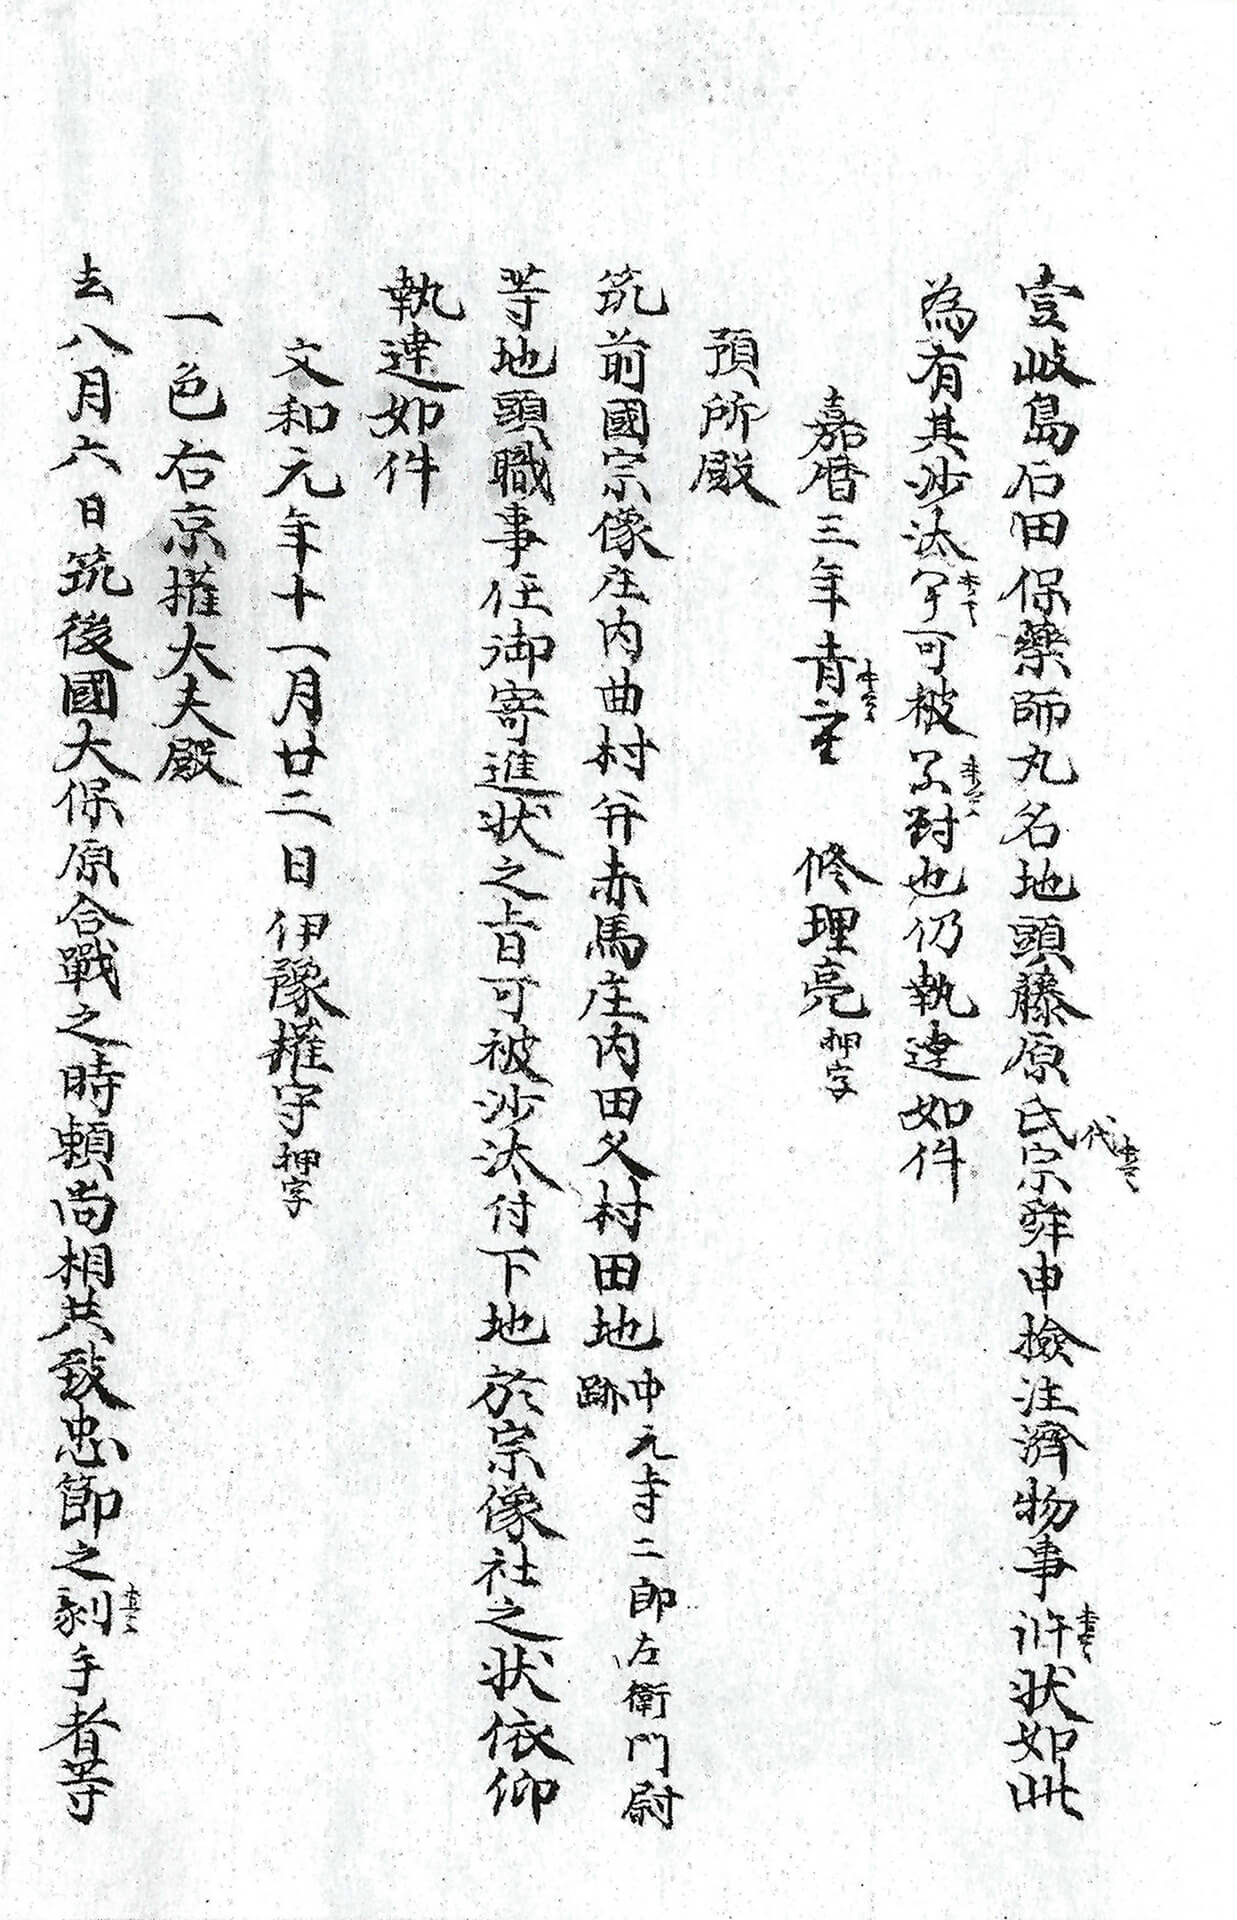 壹岐島石田保藥師丸名地頭藤原氏代宗舜申撿注濟物事訴状如此
為有其沙汰可被対也仍執達如件
嘉暦三年青 修理亮押字
預所殿
筑前國宗像庄内曲村并赤馬庄内田久村田地中元寺二郎左衛門尉跡
等地頭職事任御寄進状之旨可被沙汰付下地於宗像社之状依仰
執達如件
文和元年十一月廿二日伊豫權守押字
一色右京權大夫殿
去八月六日筑後國大保原合戰之時頼尚相共致忠節之刻手者等